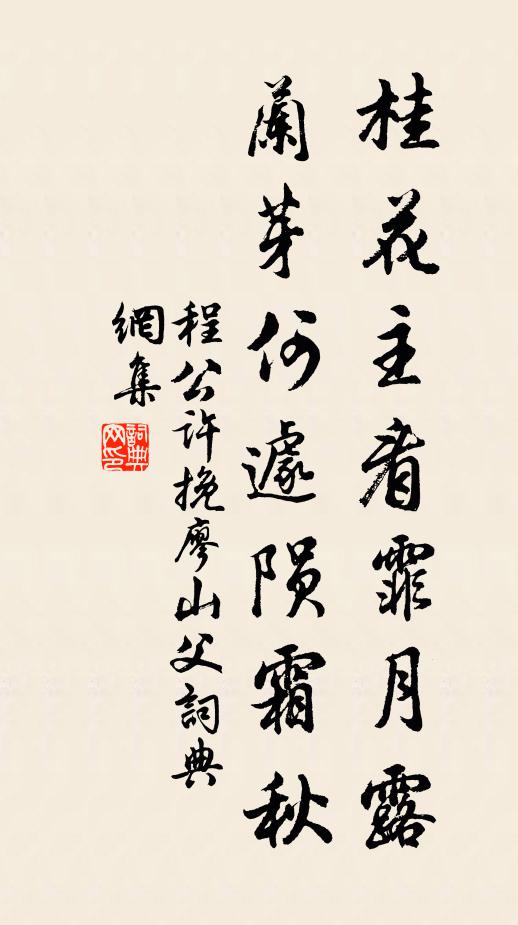 桂花主者霏月露
蘭芽何遽隕霜秋
程公許挽廖山父詞典
網集
詞典網印